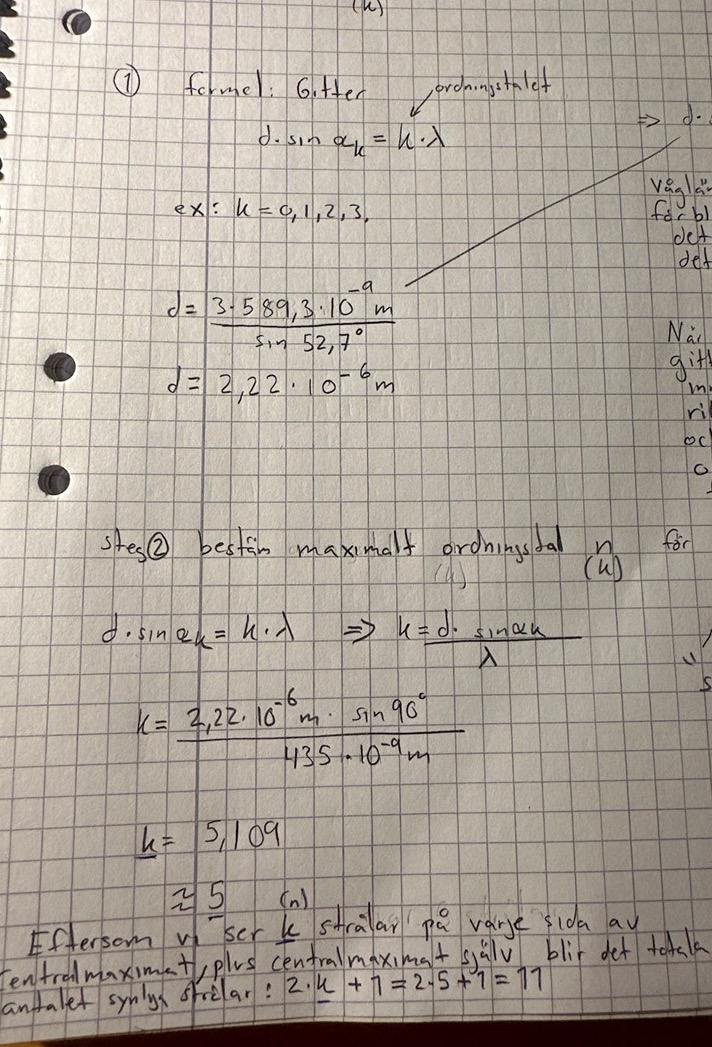 (k)
① formel: Gitter
ordningstalet
d · sin αk = k · λ
⇒ d ·
ex: k = 0, 1, 2, 3.
Våglän
förbl
det
det
d = 3 · 589,3 · 10⁻⁹ m / sin 52,7°
d = 2,22 · 10⁻⁶ m
När
gitt
ri
oc
steg ② bestäm maximalt ordningstal n för
(k) (k)
d · sin αk = k · λ ⇒ k = d · sin αk / λ
k = 2,22 · 10⁻⁶ m · sin 90° / 435 · 10⁻⁹ m
k = 5,109
≈ 5 (n)
Eftersom vi ser k strålar på varje sida av
entralmaximat, plus centralmaximat själv blir det totala
antalet synliga strålar : 2 · k + 1 = 2 · 5 + 1 = 11